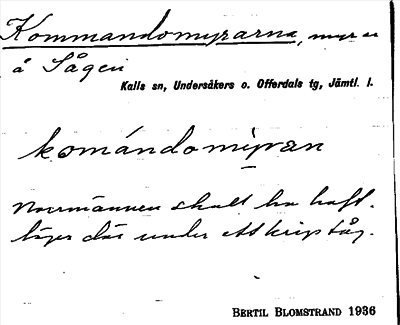 Kommandomyrarna, myr er
å Sågen
Kalls sn, Undersåkers o. Offerdals tg, Jämtl. l.
komándomỿran
Norrmännen skall ha haft
läger där under ett krigståg.
BERTIL BLOMSTRAND 1936